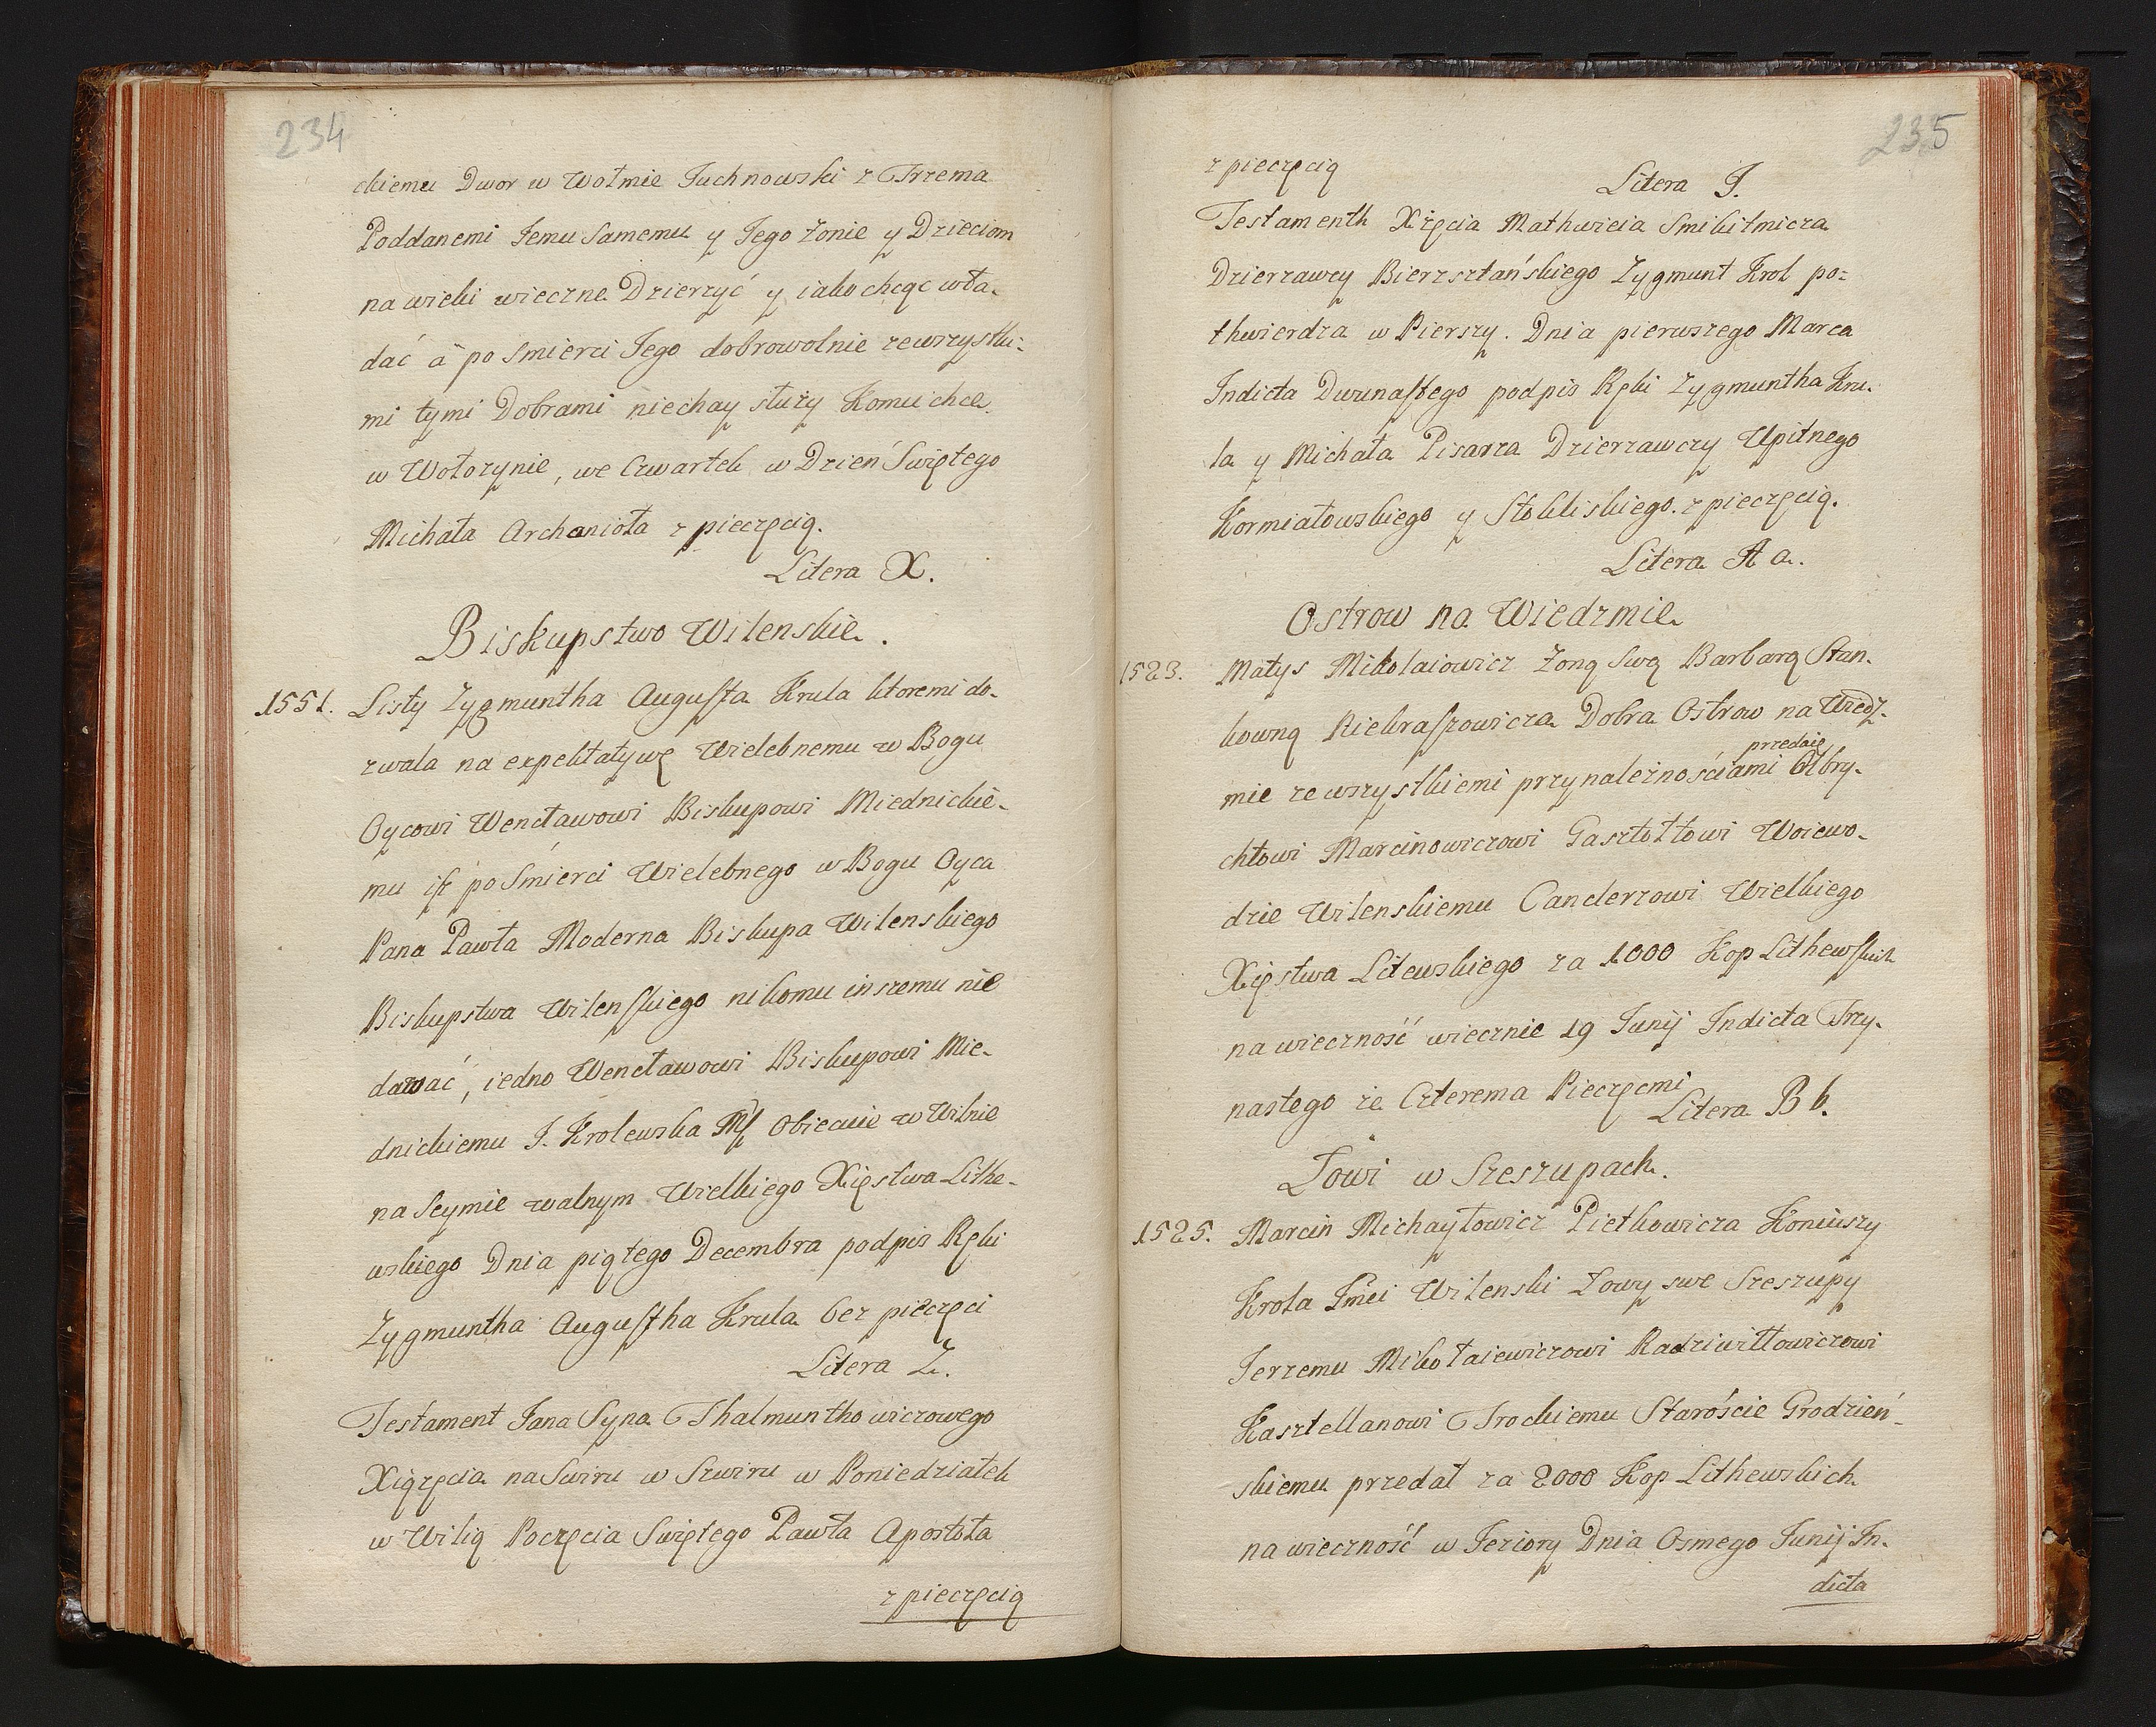 234
ckiemu Dwor w Wołmie Juchnowski z Trzema
Poddanemi Jemu Samemu y Jego Żonie y Dzieciom
na wieki wieczne Dzierzyć y iako chcąc wła-
dać á po Smierci Jego dobrowolnie zewszystki-
mi tymi Dobrami niechay służy Komu chce.
w Wołozynie, we Czwartek w Dzień Swiętego
Michała Archanioła z pieczęcią.
Litera X.
Biskupstwo Wilenskie.
1551. Listy Zygmuntha Augusta Krula ktoremi do-
zwala na expektatywę Wielebnemu w Bogu
Oycowi Wencławowi Biskupowi Miednickie-
mu iż po Smierci Wielebnego w Bogu Oyca
Pana Pawła Moderna Biskupa Wilenskiego
Biskupstwa Wilenskiego nikomu inszemu nie
dawać, iedno Wencławowi Biskupowi Mie-
dnickiemu J. Krolewska Mć Obiecuie w Wilnie
na Seymie walnym Wielkiego Xięstwa Lithe-
wskiego Dnia piątego Decembra podpis Ręki
Zygmuntha Augustha Krula bez pieczęci
Litera Z.
Testament Jana Syna Thalmunthowiczowego
Xiązęcia na Swiru w Szwiru w Poniedziałek
w Wilią Poczęcia Swiętego Pawła Apostoła
z pieczęcią
235
z pieczęcią
Litera J.
Testamenth Xżęcia Mathwieia Smikitmicza
Dzierzawcy Bierzsztańskiego Zygmunt Krol po-
thwierdza w Pierszy. Dnia pierwszego Marca
Indicta Dwunastego podpis Ręki Zygmuntha Kru-
la y Michała Pisarza Dzierzawczy Upitnego
Kormiałowskiego y Stokliskiego. z pieczęcią.
Litera A a.
Ostrow na Wiedzmie
1523. Matys Mikolaiowicz Żoną Swą Barbarą Stan-
kowną Kiebraszowicza Dobra Ostrow na Wiedz-
mie ze wszystkiemi przynależnościami przedaię Olbry-
chtowi Marcinowiczowi Gasztołtowi Woiewo-
dzie Wilenskiemu Canclerzowi Wielkiego
Xięstwa Litewskiego za 1000 Kop Lithewskich
na wieczność wiecznie 19 Junij Indicta Trzy-
nastego ze Czterema Pieczęcmi
Litera B b.
Łowi w Szeszupach.
1525. Marcin Michayłowicz Pietkowicza Koniuszy
Krola Jmci Wilenski Łowy swe Szeszupy
Jerzemu Mikołaiewiczowi Radziwiłłowiczowi
Kasztellanowi Trockiemu Staroście Grodzień-
skiemu przedał za 2000 Kop Lithewskich
na wieczność w Jeziory Dnia Osmego Junij In-
dicta